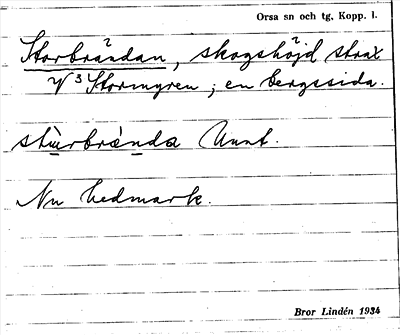 Orsa sn och tg, Kopp. l.
Storbrändan, skogshöjd strax
V³ Stormyren; en bergssida.
stùrbrä́nda Unnt.
Nu hedmark.
Bror Lindén 1934